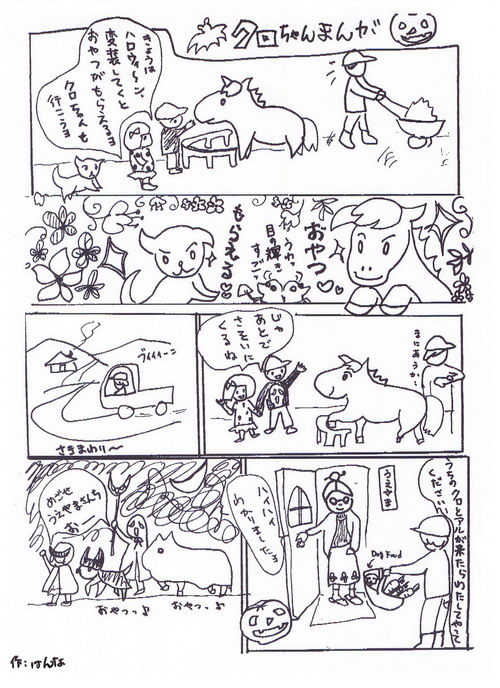 クロちゃんまんが
きょうは
ハロウィ〜ン。
変装してくと
おやつがもらえるヨ
クロちゃんも
行こうヨ
おやつ♡♡
うわっ
目の輝き
すっごっ
もらえる♡♡
まにあうか〜
じゃ
あとで
さそいに
くるね
ブィィィーン
さきまわり〜
うちのクロとアルが来たらわたしてやって
ください。
うえやま
Dog Food
ハイハイ
わかりましたョ
めざせ
うえやまさんち
お〜
おやつっ♪
おやつっ♪
作：はんな